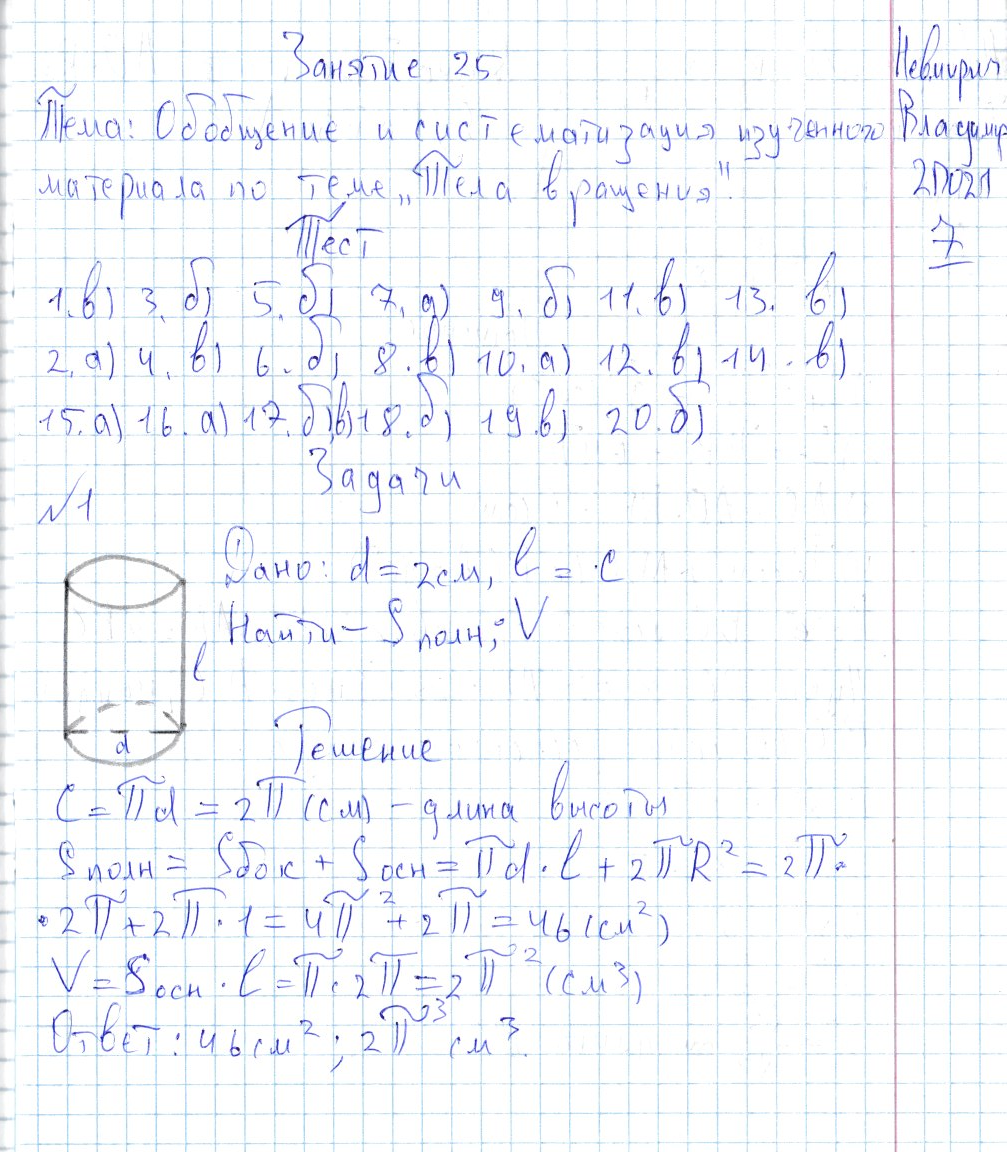 Занятие 25
Тема: Обобщение и систематизация изученного
материала по теме „Тела вращения".
Тест
1.в) 3.б) 5.б) 7.а) 9.б) 11.в) 13.в)
2.а) 4.в) 6.б) 8.в) 10.а) 12.в) 14.в)
15.а) 16.а) 17.б)в) 18.б) 19.в) 20.б)
Задачи
№1
Дано: d = 2см, l = C
Найти - Sполн; V
l
d
Решение
C = πd = 2π (см) - длина высоты
Sполн = Sбок + Sосн = πd · l + 2πR² = 2π ·
· 2π + 2π · 1 = 4π² + 2π = 46 (см²)
V = Sосн · l = π · 2π = 2π² (см³)
Ответ: 46 см²; 2π³ см³.
Владимир
2ДО21
7